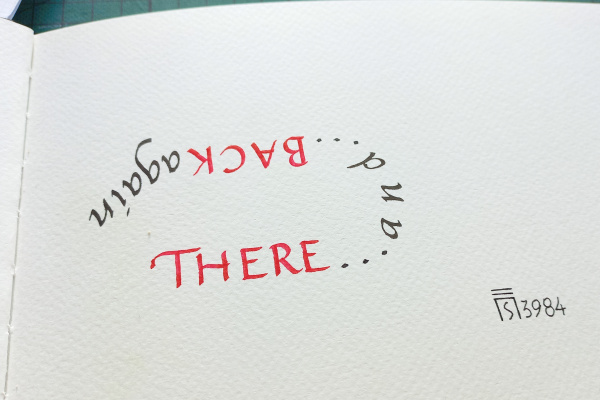 THERE... and... BACK again
S 3984